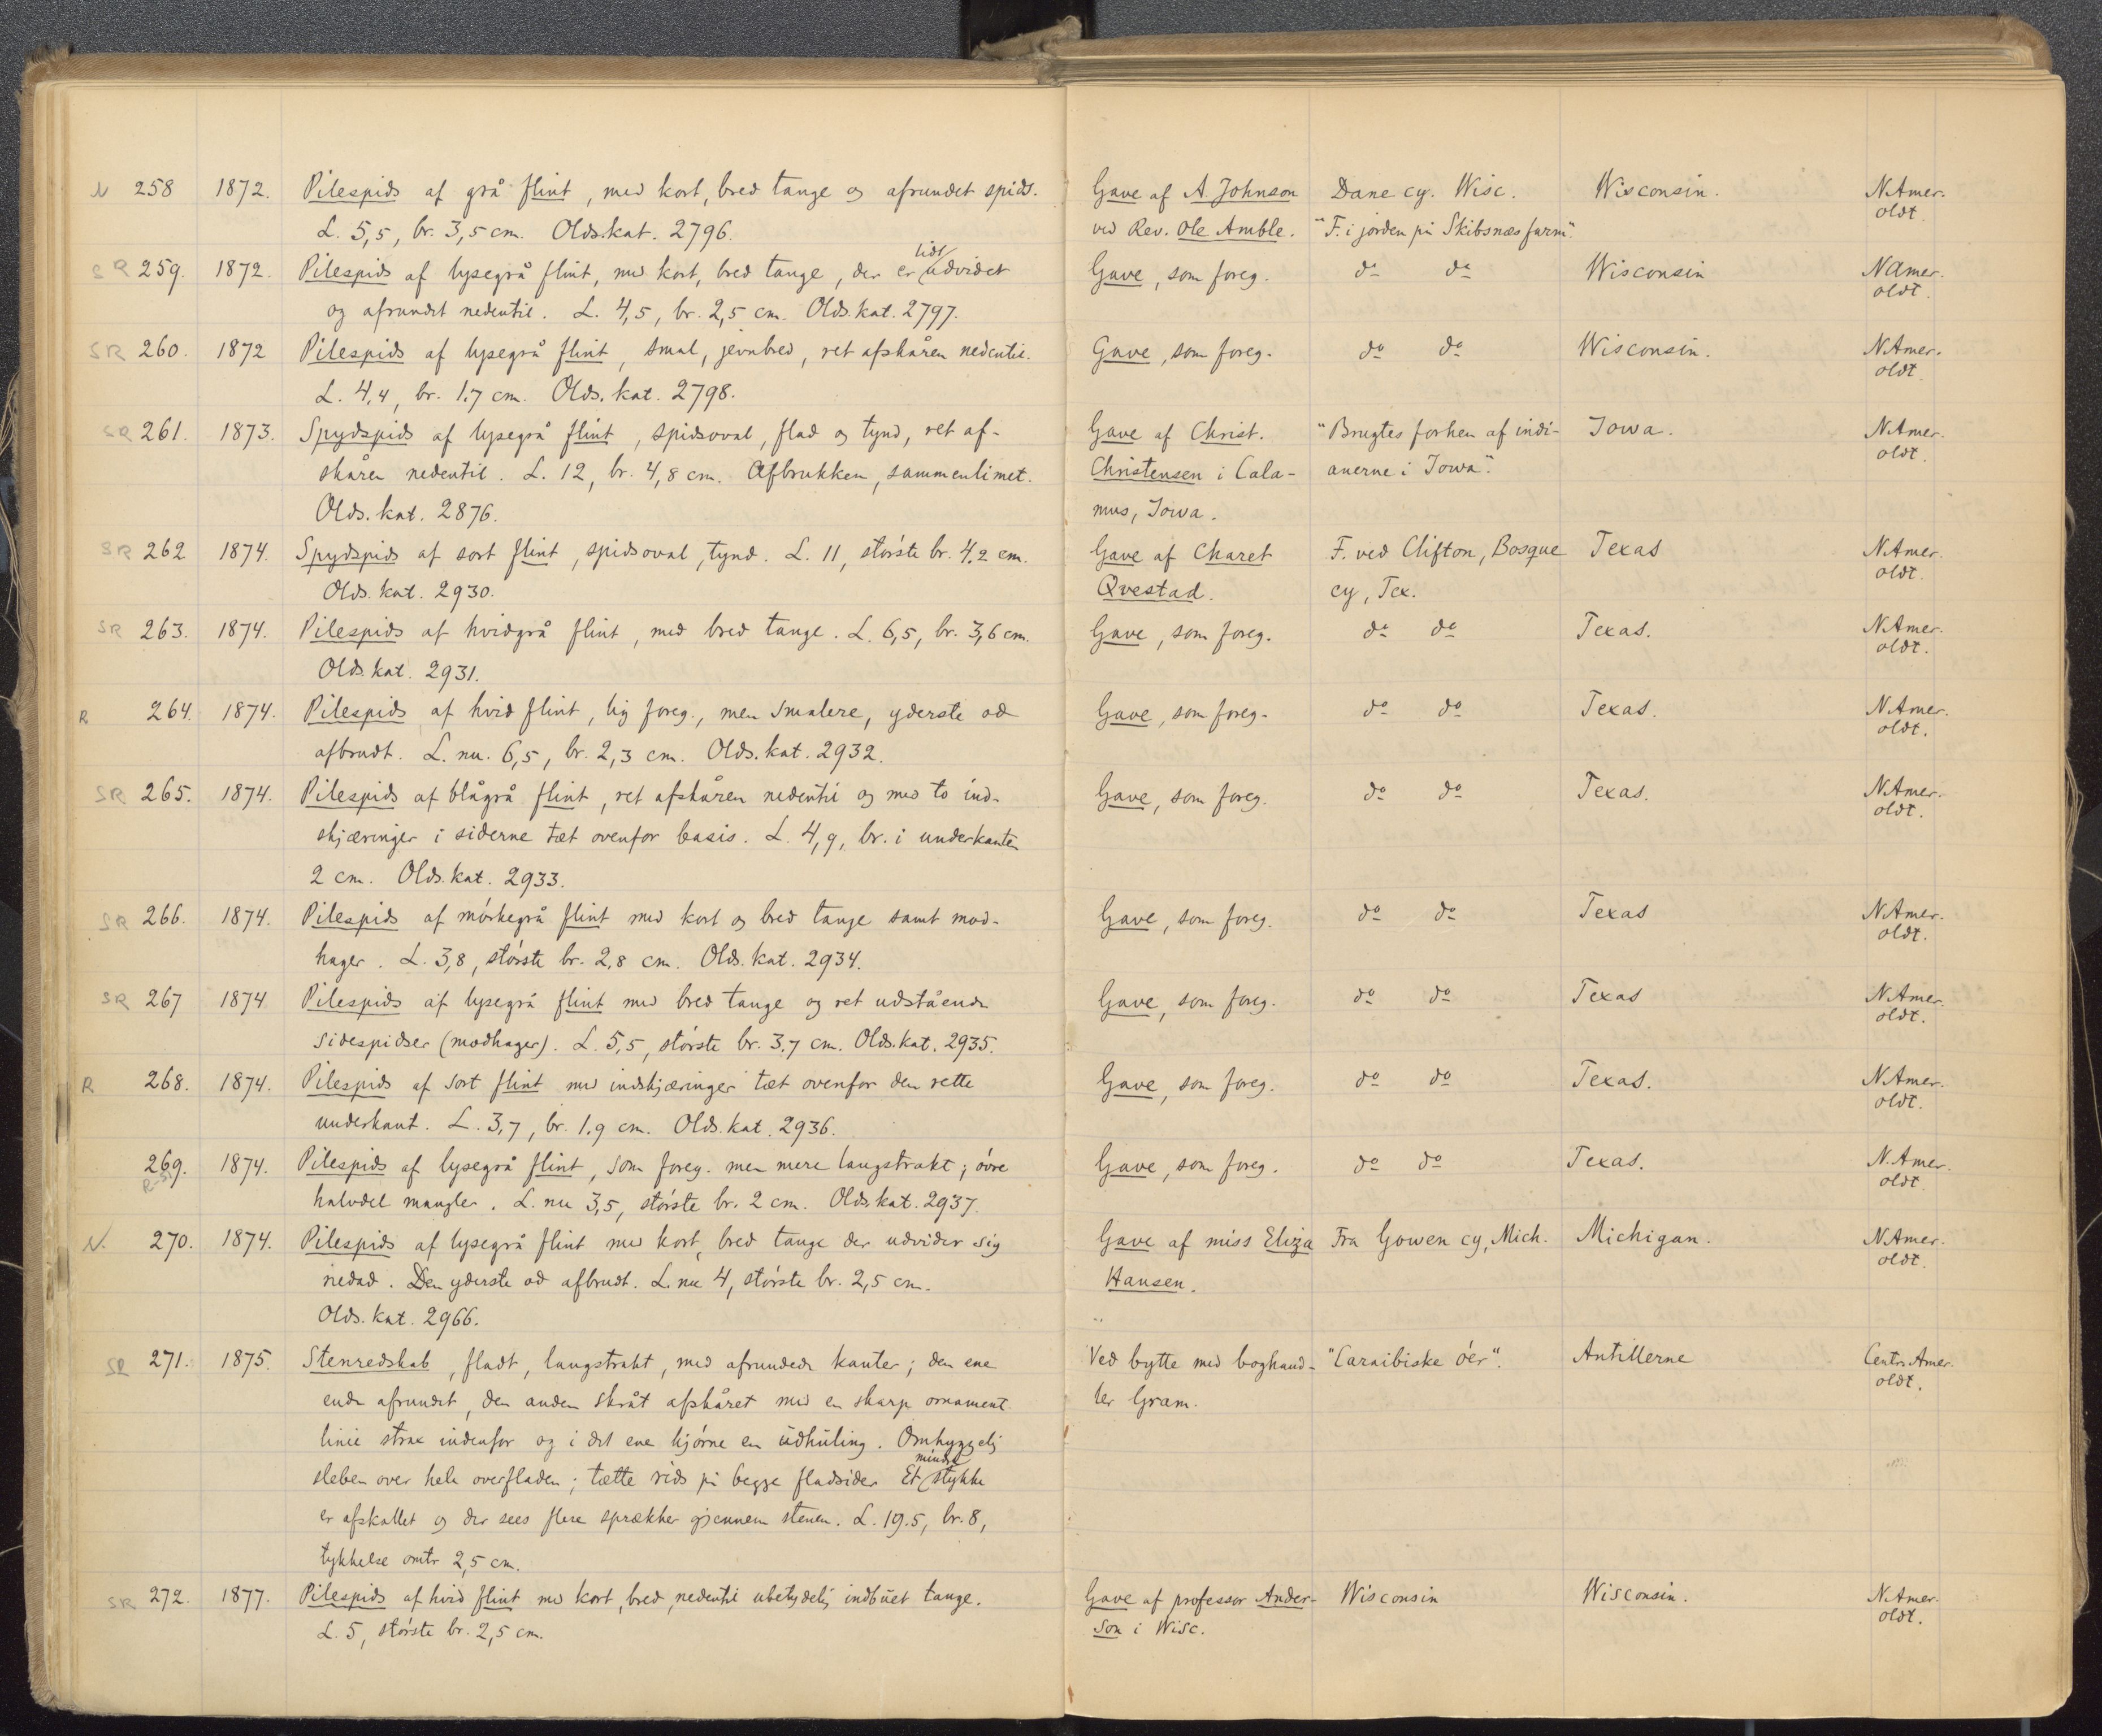 N 258 1872. Pilespids af grå flint, med kort, bred tange og afrundet spids. Gave af A. Johnson Dane cy. Wisc. Wisconsin. N.Amer.
L. 5,5, br. 3,5 cm. Olds.kat. 2796. ved Rev. Ole Amble. "F. i jorden på Skibsnæs farm". oldt.
SR 259. 1872. Pilespids af lysegrå flint, med kort, bred tange, der er lidt udvidet Gave, som foreg. do do Wisconsin N.Amer.
og afrundet nedentil. L. 4,5, br. 2,5 cm. Olds.kat. 2797. oldt.
SR 260. 1872 Pilespids af lysegrå flint, smal, jevnbred, ret afskåren nedentil. Gave, som foreg. do do Wisconsin. N.Amer.
L. 4,4, br. 1.7 cm. Olds.kat. 2798. oldt.
SR 261. 1873. Spydspids af lysegrå flint, spidsoval, flad og tynd, ret af- Gave af Christ. "Brugtes forhen af indi- Iowa. N.Amer.
skåren nedentil. L. 12, br. 4,8 cm. Afbrukken, sammenlimet. Christensen i Cala- anerne i Iowa". oldt.
Olds.kat. 2876. mus, Iowa.
SR 262 1874. Spydspids af sort flint, spidsoval, tynd. L. 11, största br. 4,2 cm. Gave af Charet F. ved Clifton, Bosque Texas N.Amer.
Olds.kat. 2930. Qvestad. cy, Tex. oldt.
SR 263. 1874. Pilespids af hvidgrå flint, med bred tange. L. 6,5, br. 3,6 cm. Gave, som foreg. do do Texas. N.Amer.
Olds.kat. 2931. oldt.
R 264. 1874. Pilespids af hvid flint, lig foreg., men smalere, yderste od Gave, som foreg. do do Texas. N.Amer.
afbrudt. L. nu. 6,5, br. 2,3 cm. Olds.kat. 2932. oldt.
SR 265. 1874. Pilespids af blågrå flint, ret afskåren nedentil og med to ind- Gave, som foreg. do do Texas. N.Amer.
skjæringer i siderne tæt ovenfor basis. L. 4,9, br. i underkanten oldt.
2 cm. Olds.kat. 2933.
SR 266. 1874. Pilespids af mörkegrå flint med kort og bred tange samt mod- Gave, som foreg. do do Texas N.Amer.
hager. L. 3,8, störste br. 2,8 cm. Olds.kat. 2934. oldt.
SR 267 1874. Pilespids af lysegrå flint med bred tange og ret udstående Gave, som foreg. do do Texas N.Amer.
sidespidser (modhager). L. 5,5, störste br. 3,7 cm. Olds.kat. 2935. oldt.
R 268. 1874. Pilespids af sort flint med indskjæringer tæt ovenfor den rette Gave, som foreg. do do Texas. N.Amer.
underkant. L. 3,7, br. 1.9 cm. Olds.kat. 2936. oldt.
269. 1874. Pilespids af lysegrå flint, som foreg. men mere langstrakt; övre Gave, som foreg. do do Texas. N.Amer.
halvdel mangler. L. nu 3,5, störste br. 2 cm. Olds.kat. 2937. oldt.
N. 270. 1874. Pilespids af lysegrå flint med kort, bred tange der udvider sig Gave af miss Eliza Fra Gowen cy, Mich. Michigan. N.Amer.
nedad. Den yderste od afbrudt. L. nu 4, störste br. 2,5 cm. Hansen. oldt.
Olds.kat. 2966.
SR 271. 1875. Stenredskab, fladt, langstrakt, med afrundede kanter; den ene Ved bytte med boghand- "Caraibiske öer". Antillerne Centr.Amer.
ende afrundet, den anden skråt afskåret med en skarp ornament ler Gram. oldt.
linie strax indenfor og i det ene hjörne en udhuling. Omhyggelig
sleben over hele overfladen; tætte rids på begge fladsider Et mindre stykke
er afskallet og der sees flere sprækker gjennem stenen. L. 19.5, br. 8,
tykkelse omtr 2,5 cm.
SR 272. 1877. Pilespids af hvid flint med kort, bred, nedentil ubetydelig indbuet tange. Gave af professor Ander- Wisconsin Wisconsin. N.Amer.
L. 5, störste br. 2,5 cm. son i Wisc. oldt.